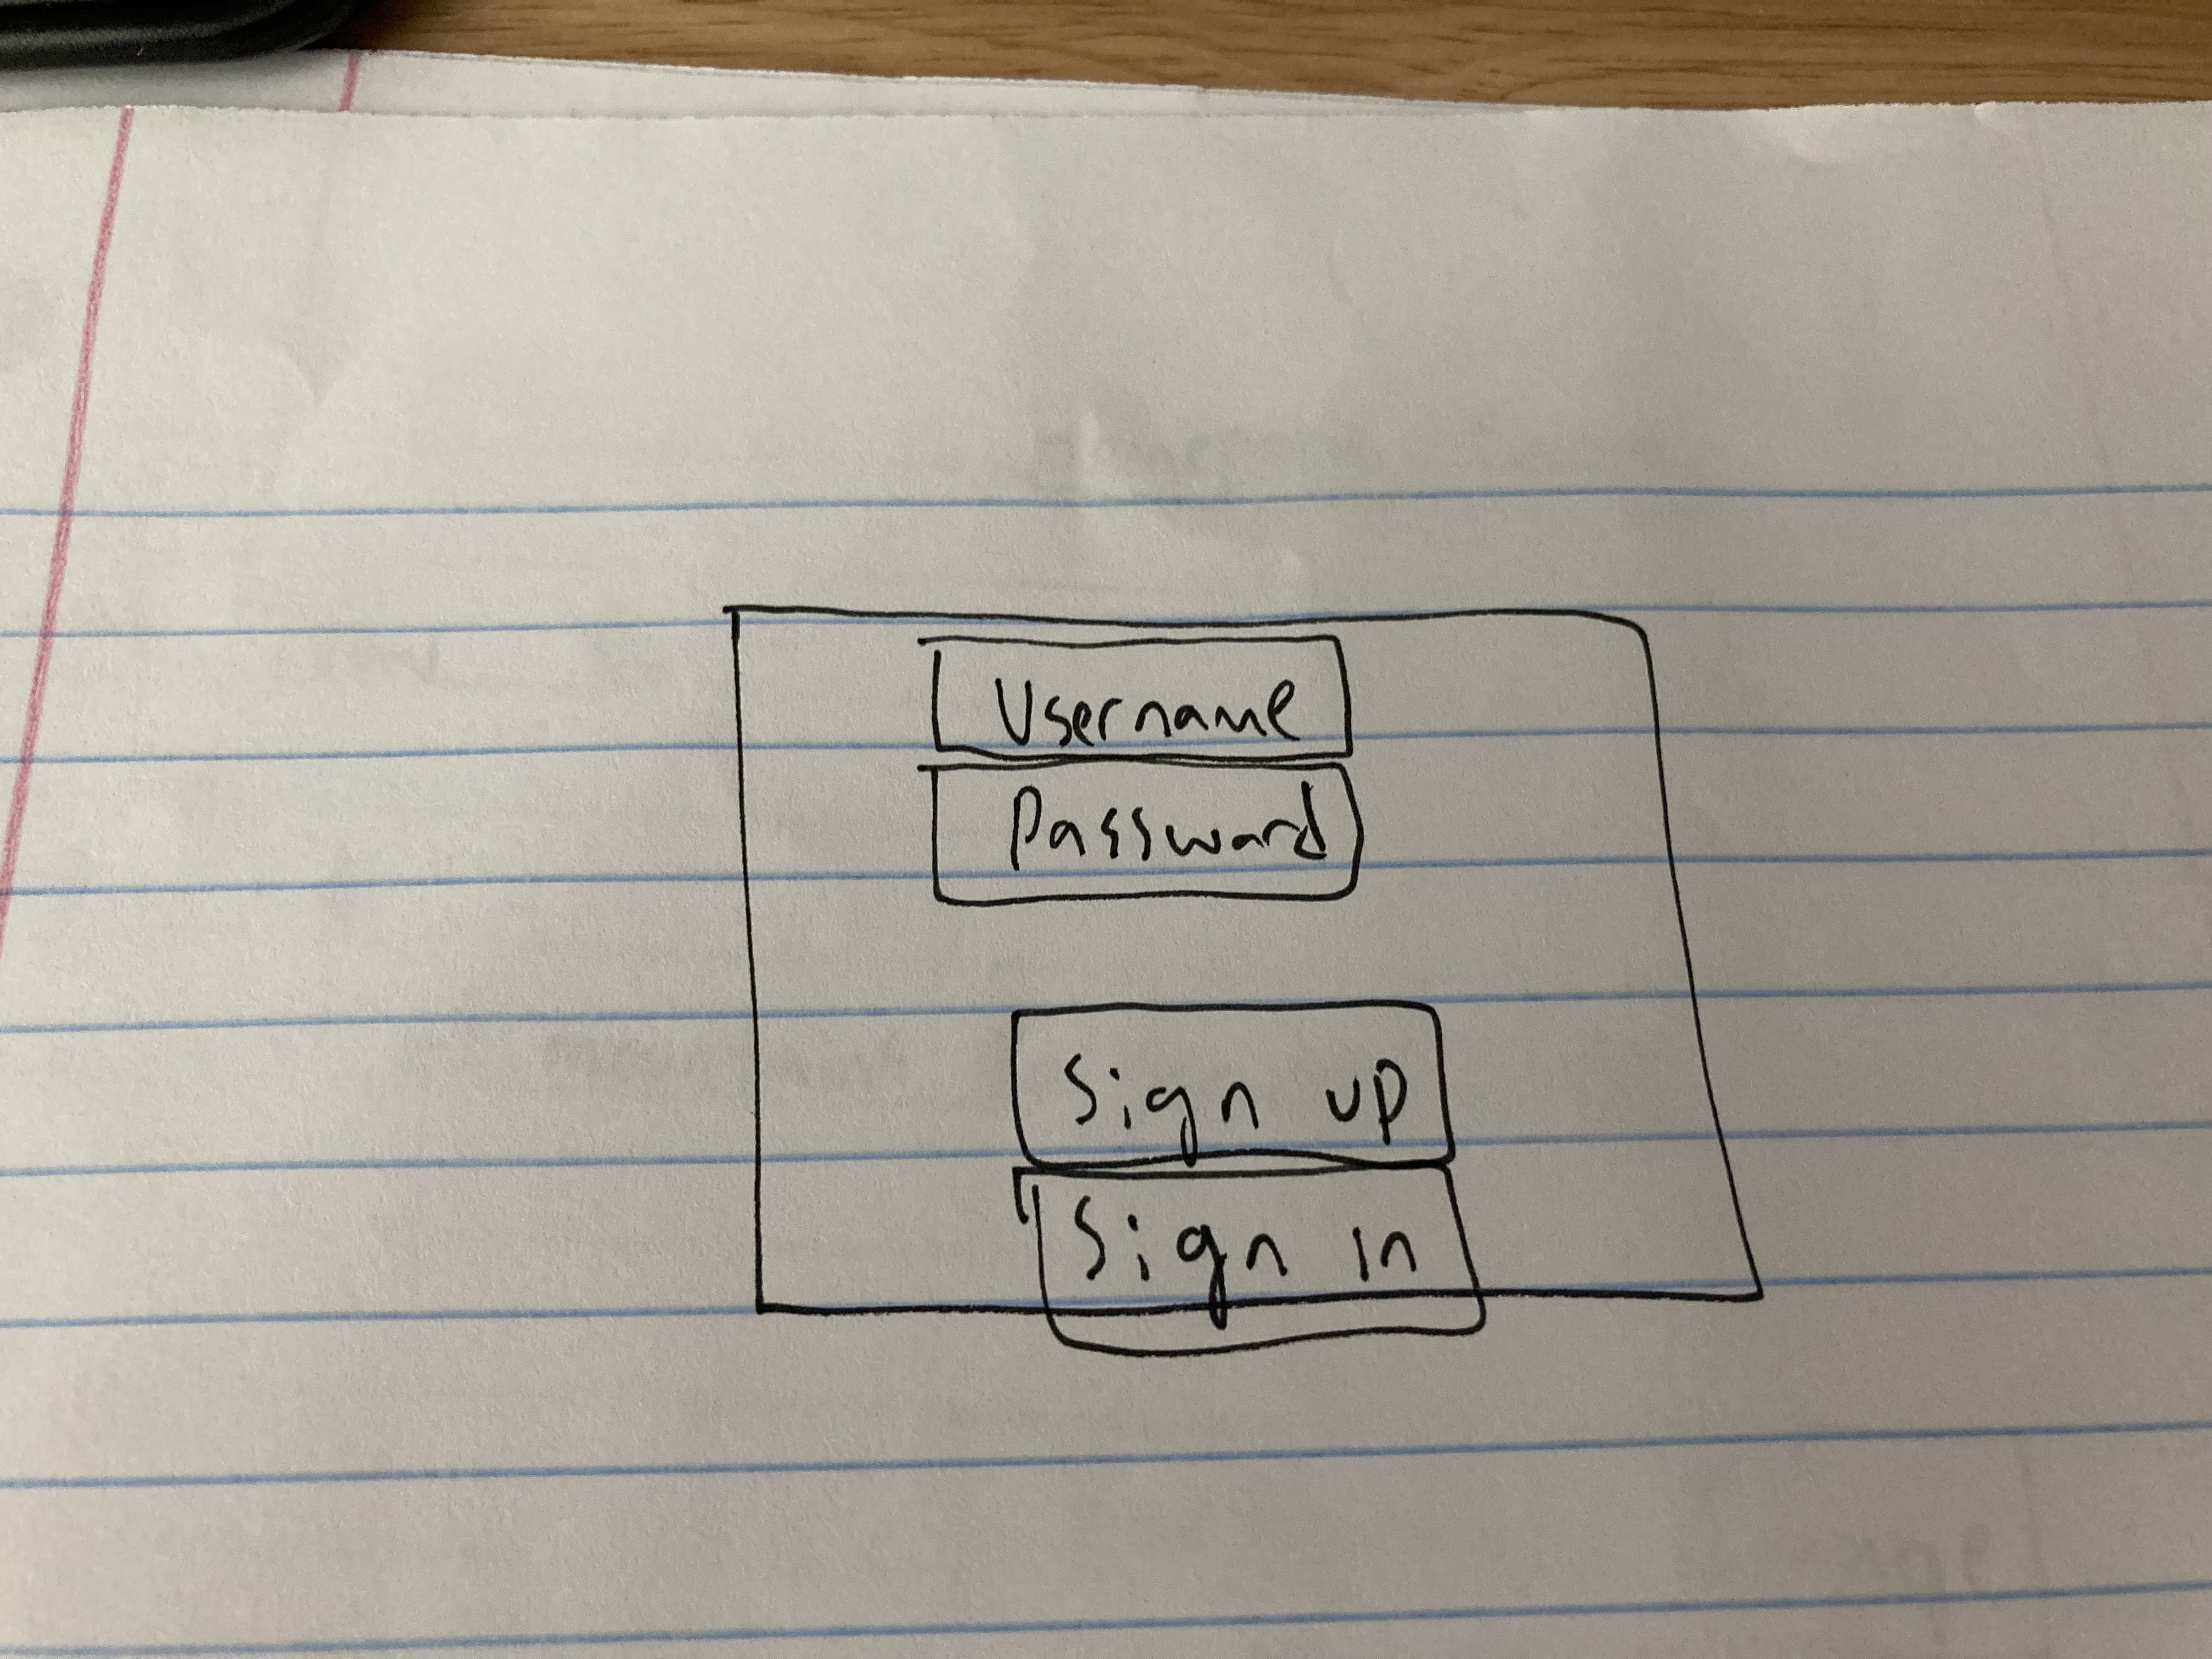 Username
Password
Sign up
Sign In